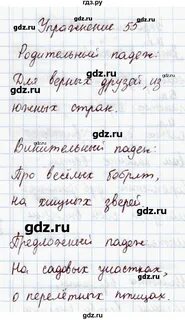 гдз.ру
Упражнение 55
Родительный падеж:
Для верных друзей, из
южных стран.
Винительный падеж:
Про весёлых бобрят,
на хищных зверей.
Предложный падеж:
На садовых участках,
о перелётных птицах.